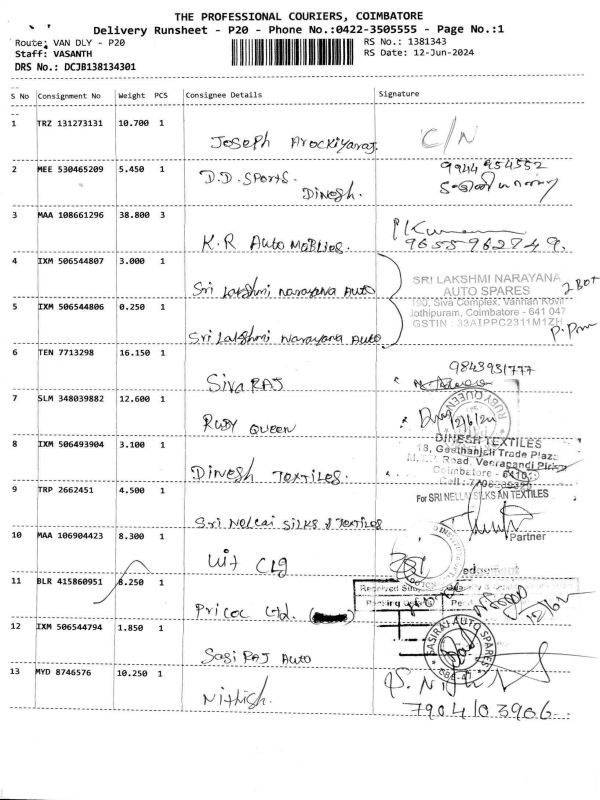 THE PROFESSIONAL COURIERS, COIMBATORE
Delivery Runsheet - P20 - Phone No.:0422-3505555 - Page No.:1
Route: VAN DLY - P20
Staff: VASANTH
DRS No.: DCJB138134301
RS No.: 1381343
RS Date: 12-Jun-2024
S No Consignment No Weight PCS Consignee Details Signature
1 TRZ 131273131 10.700 1 Joseph Arockiyaraj C/N
2 MEE 530465209 5.450 1 D.D. Sports. Dinesh. 9944 954552
3 MAA 108661296 38.800 3 K.R Auto Moblies. 9655962749.
4 IXM 506544807 3.000 1 Sri Lakshmi Narayana Auto
5 IXM 506544806 0.250 1 Sri Lakshmi Narayana Auto
SRI LAKSHMI NARAYANA
AUTO SPARES
190, Siva Complex, Vannan Kovil
Jothipuram, Coimbatore - 641 047
GSTIN : 33AIPPC2311M1ZH
2 Box
6 TEN 7713298 16.150 1 Siva RAJ 9843931777
7 SLM 348039882 12.600 1 Ruby Queen 12/6/24
RUBY QUEEN
8 IXM 506493904 3.100 1 Dinesh Textiles.
DINESH TEXTILES
18, Geethanjali Trade Plaza
Road, Veerapandi Pirivu
Coimbatore - 6410
Cell :
9 TRP 2662451 4.500 1 Sri Nellai Silks & Textiles
For SRI NELLAI SILKS AN TEXTILES
Partner
10 MAA 106904423 8.300 1 Clg
11 BLR 415860951 8.250 1 Pricol Ltd.
Received
12/6/24
12 IXM 506544794 1.850 1 Sasi RAJ Auto
SASIRAJ AUTO SPARES
13 MYD 8746576 10.250 1 Nithish. S. Nithish
7904103906.